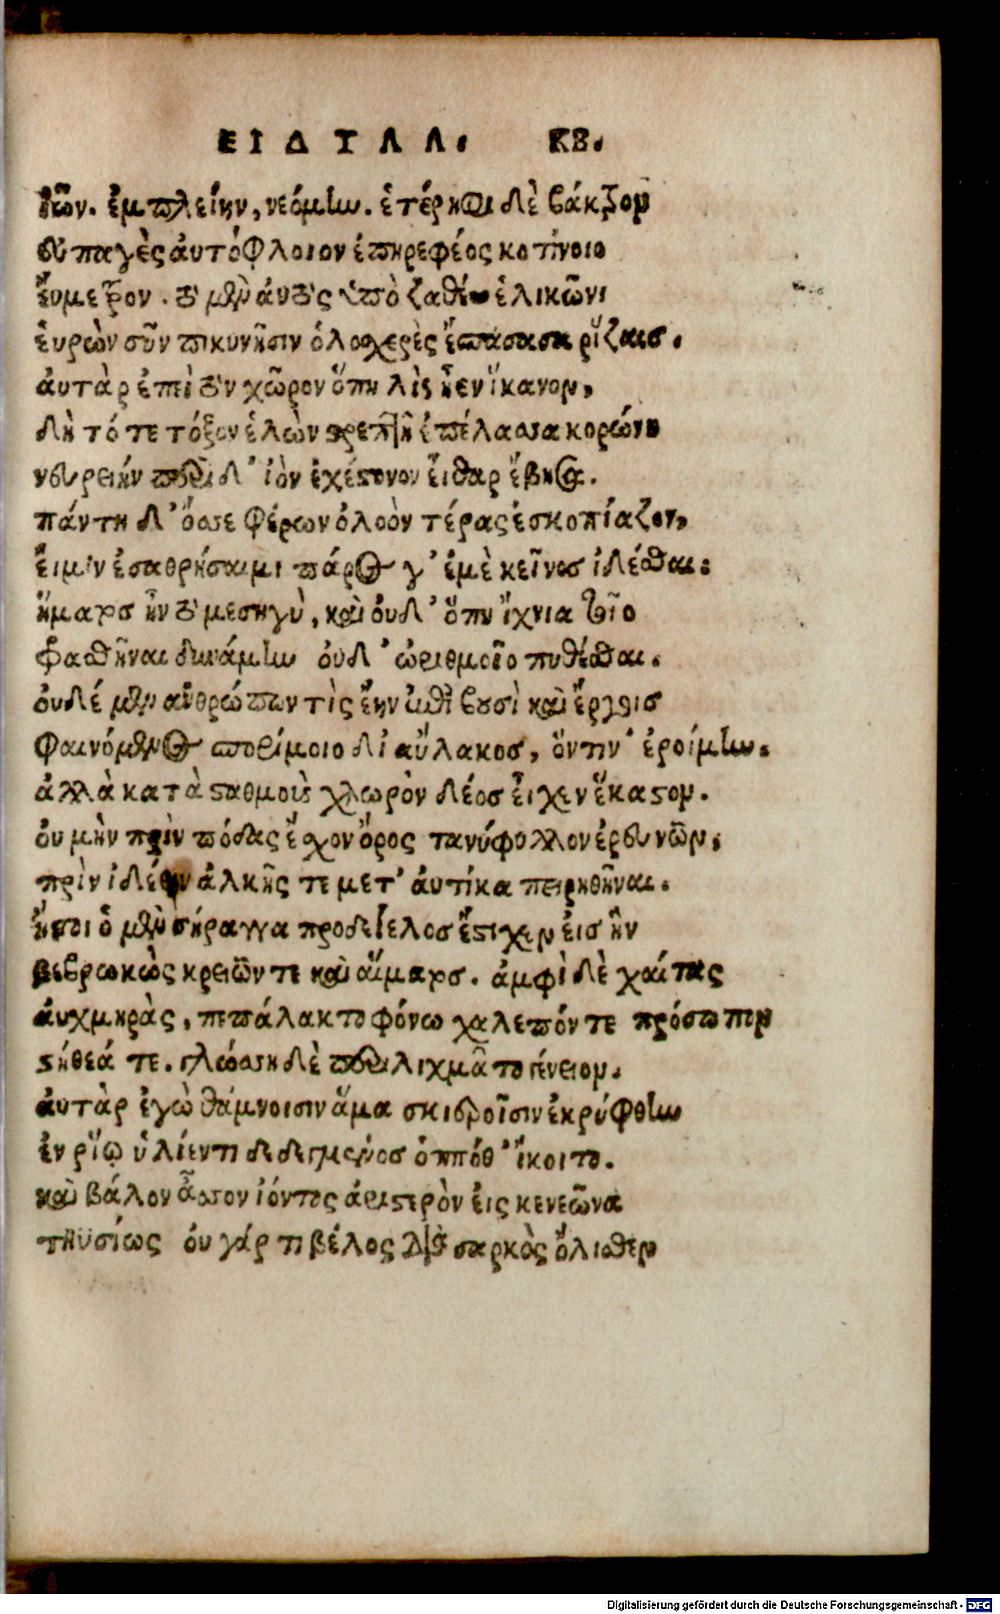 ΕΙΔΥΛΛ. ΚΒ.
ἰῶν. ἐμπλείην, νεόμην. ἑτέρηφι δὲ βάκτρον
εὐπαγὲς ἀυτόφλοιον ἐπηρεφέος κοτίνοιο
ἔυμετρον. τὸ μὲν ἀυτὸς ὑπὸ ζαθέῳ ἑλικῶνι
ἑυρὼν σὺν πυκινῇσιν ὁλοσχερὲς ἔσπασα ῥίζαις.
ἀυτὰρ ἐπεὶ τὸν χῶρον ὅπη λὶς ἦεν ἵκανον,
δὴ τότε τόξον ἑλὼν στρεπτῇ ἐπέλασσα κορώνῃ
νευρειήν περὶ δ' ἰὸν ἐχέστονον εἶθαρ ἔβησα.
πάντη δ' ὄσσε φέρων ὀλοὸν τέρας ἐσκοπίαζον,
εἴ μιν ἐσαθρήσαιμι πάρος γ' ἐμὲ κεῖνος ἰδέσθαι.
ἤματος ἦν τὸ μεσηγὺ, καὶ ὀυδ' ὅπη ἴχνια τοῖο
φρασθῆναι δυνάμην ὀυδ' ὠρυθμοῖο πυθέσθαι.
ὀυδὲ μὲν ἀνθρώπων τὶς ἔην ἐπὶ βουσὶ καὶ ἔργοις
φαινόμενος σπορίμοιο δι' αὔλακος, ὅντιν' ἐροίμην.
ἀλλὰ κατὰ σταθμοὺς χλωρὸν δέος εἶχεν ἕκαστον.
ὀυ μὴν πρὶν πόδας ἔσχον ὄρος τανύφυλλον ἐρευνῶν,
πρὶν ἰδέειν ἀλκῆς τε μετ' ἀυτίκα πειρηθῆναι.
ἤτοι ὁ μὲν σήραγγα προδείελος ἔστιχεν εἰς ἣν
βεβρωκὼς κρειῶν τε καὶ αἵματος. ἀμφὶ δὲ χαίτας
ἀυχμηρὰς, πεπάλακτο φόνω χαλεπόν τε πρόσωπον
στήθεά τε. γλώσσῃ δὲ περιλιχμᾶτο γένειον.
ἀυτὰρ ἐγὼ θάμνοισιν ἅμα σκιεροῖσιν ἐκρύφθην
ἐν ῥίῳ ὑλήεντι δεδεγμένος ὁππόθ' ἵκοιτο.
καὶ βάλον ἆσσον ἰόντος ἀριστερὸν εἰς κενεῶνα
τηυσίως ὀυ γάρ τι βέλος διὰ σαρκὸς ὄλισθεν
Digitalisierung gefördert durch die Deutsche Forschungsgemeinschaft - DFG